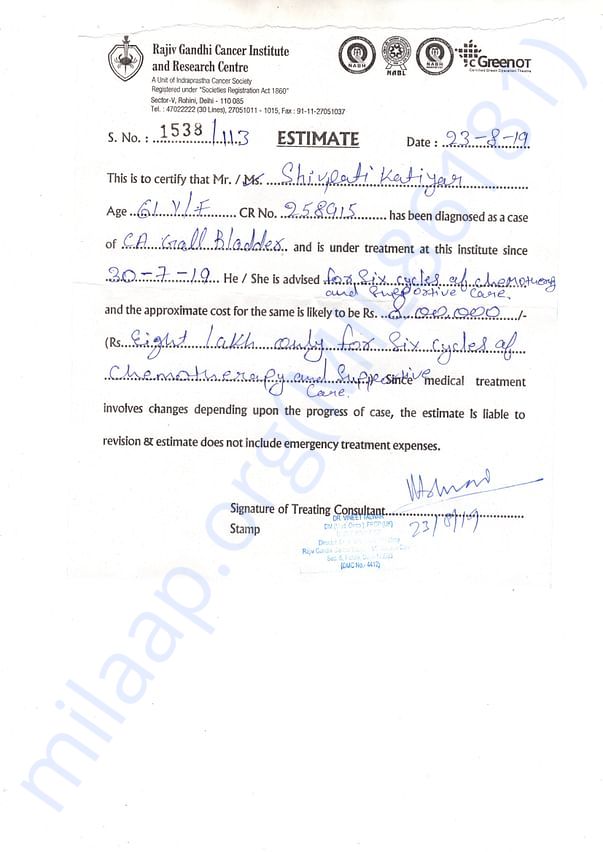 Rajiv Gandhi Cancer Institute
and Research Centre
A Unit of Indraprastha Cancer Society
Registered under "Societies Registration Act 1860"
Sector-V, Rohini, Delhi - 110 085
Tel. : 47022222 (30 Lines), 27051011 - 1015, Fax : 91-11-27051037
NABH
NABL
NABH
GreenOT
Certified Green Operation Theatre
S. No. : 1538/113 ESTIMATE Date : 23-8-19
This is to certify that Mr. / Ms. Shivpati Katiyar
Age 61 Y/F CR No. 258915 has been diagnosed as a case
of CA Gall Bladder and is under treatment at this institute since
30-7-19. He / She is advised for six cycles of chemotherapy
and supportive care.
and the approximate cost for the same is likely to be Rs. 8,00,000 /-
(Rs. Eight lakh only for six cycles of
chemotherapy and supportive Since medical treatment
care.
involves changes depending upon the progress of case, the estimate is liable to
revision & estimate does not include emergency treatment expenses.
Signature of Treating Consultant
23/8/19
Stamp
DR. VINEET TALWAR
(DMC No.- 4412)
milaap.org(MIL86181)